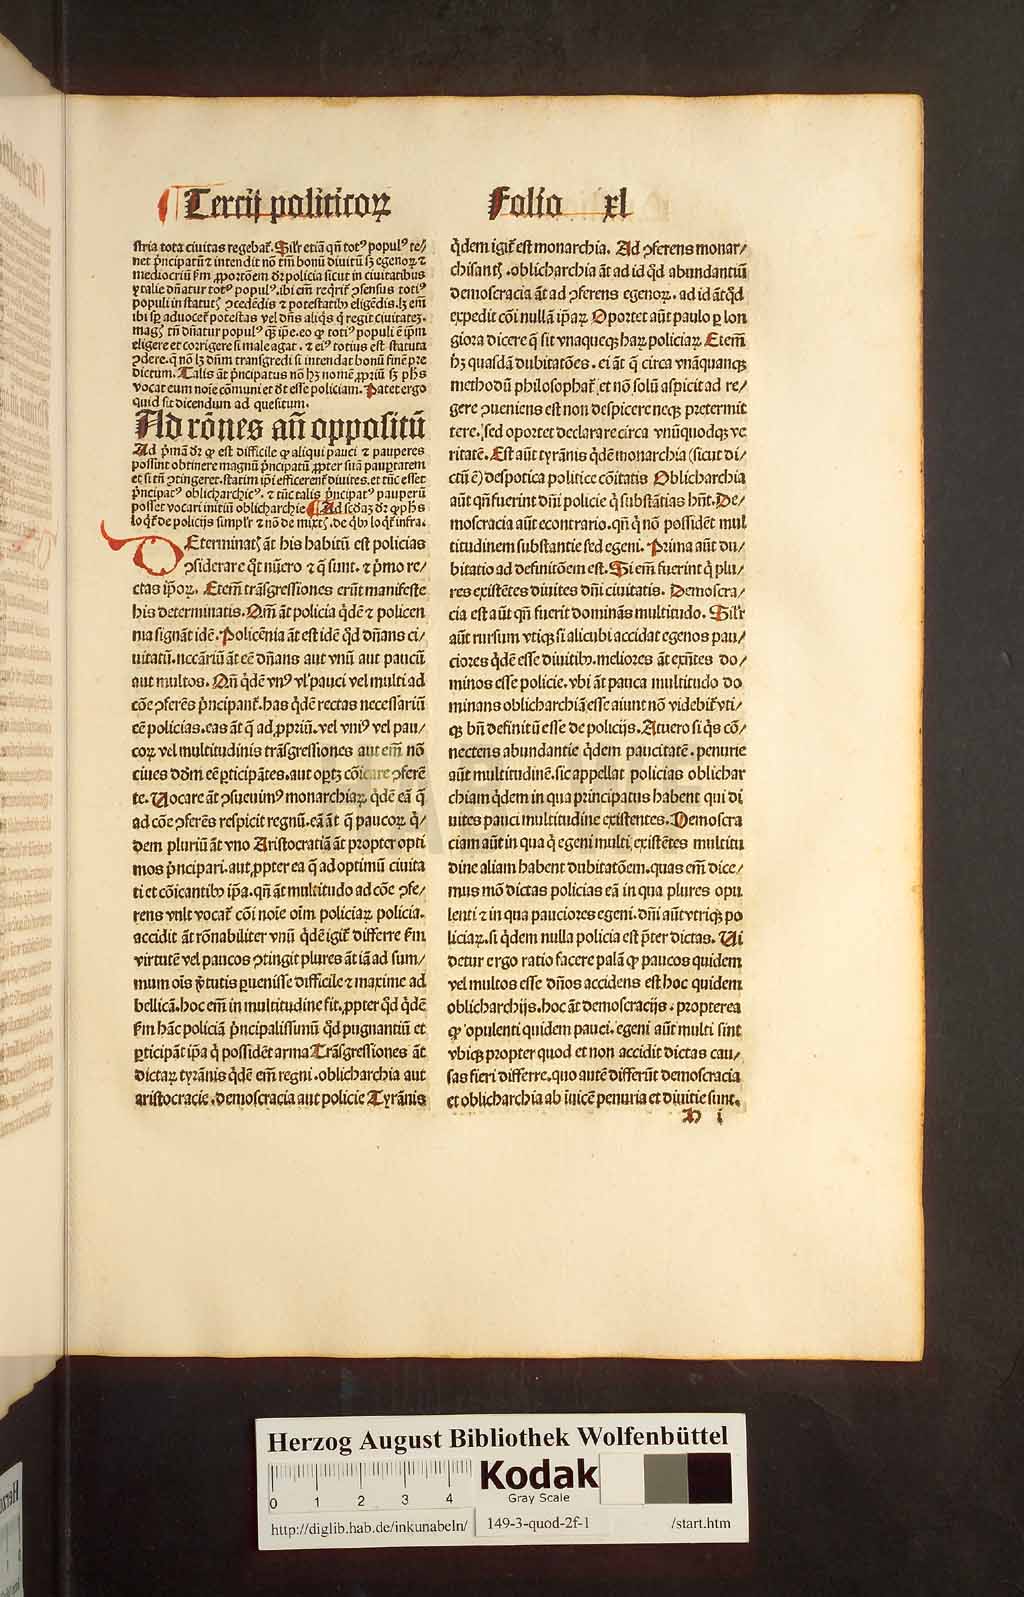 Tercij politicoꝝ Folio xl
stria tota ciuitas regebat̄. Sil'r etiā qn̄ totꝰ popul'ꝰ te/
net p̄ncipatū ⁊ intendit nō tm̄ bonū diuitū sꝫ egenoꝝ ⁊
mediocriū ẜm ꝓportōem dr̄ policia sicut in ciuitatibus
ytalie dn̄atur totꝰ populꝰ. ibi em̄ req̄rit̄ ꝯsensus totiꝰ
populi in statutꝭ ꝯcedēdis ⁊ potestatibꝫ eligēdis. lꝫ em̄
ibi sp̄ aduocet̄ potestas vel dn̄s aliq̄s q̄ regit ciuitatē.
magꝭ tn̄ dn̄atur populꝰ qꝫ ip̄e. eo ꝙ totiꝰ populi ē ip̄m
eligere et corrigere si male agat. ⁊ eiꝰ totius est statuta
ꝯdere. q̄ nō lꝫ dn̄m transgredi si intendat bonū finē pre
dictum. Talis āt p̄ncipatus nō hꝫ nomē ꝓpriū sꝫ ph̄s
vocat eum noīe cōmuni et dt̄ esse policiam. Patet ergo
quid sit dicendum ad quesitum.
Ad rōnes an̄ oppositū
Ad p̄mā dr̄ ꝙ est difficile ꝙ aliqui pauci ⁊ pauperes
possunt obtinere magnū p̄ncipatū ꝓpter suā pauꝑtatem
et si tn̄ ꝯtingeret. statim ip̄i efficerent̄ diuites. et tūc esset
p̄ncipatꝰ oblicharchicꝰ. ⁊ tūc talis p̄ncipatꝰ pauperū
posset vocari initiū oblicharchie. Ad scd̄aꝫ dr̄ ꝙ ph̄s
loq̄t̄ de policijs simpl'r ⁊ nō de mixtꝭ. de q̄bꝫ loq̄t̄ infra.
DEterminatꝭ āt his habitū est policias
ꝯsiderare q̄t nūero ⁊ q̄ sunt. ⁊ p̄mo re/
ctas ip̄oꝝ. Etem̄ trāsgressiones erūt manifeste
his determinatis. Qm̄ āt policia q̄dē ⁊ policen
nia signāt idē. Policēnia āt est idē q̄d dn̄ans ci/
uitatū. nccāriū āt eē dn̄ans aut vnū aut paucū
aut multos. Qn̄ q̄dē vnꝰ vl' pauci vel multi ad
cōe ꝯferēs p̄ncipant̄. has q̄dē rectas necessariū
eē policias. eas āt q̄ ad ꝓpriū. vel vniꝰ vel pau/
coꝝ vel multitudinis trāsgressiones aut em̄ nō
ciues dd̄m eē ꝑticipātes. aut oꝑtꝫ cōicare ꝯferē
te. Vocare āt ꝯsueuimꝰ monarchiaꝝ q̄dē eā q̄
ad cōe ꝯferēs respicit regnū. eā āt q̄ paucoꝝ q̄/
dem pluriū āt vno Aristocratiā āt propter opti
mos p̄ncipari. aut ꝓpter ea q̄ ad optimū ciuita
ti et cōicantibꝫ ip̄a. qn̄ āt multitudo ad cōe ꝯfe/
rens vult vocat̄ cōi noīe oīm policiaꝝ policia.
accidit āt rōnabiliter vnū q̄dē igit̄ differre ẜm
virtutē vel paucos ꝯtingit plures āt iā ad sum/
mum oīs v̄tutis ꝑuenisse difficile ⁊ maxime ad
bellicā. hoc em̄ in multitudine fit. ꝓpter qd̄ q̄dē
ẜm hāc policiā p̄ncipalissimū qd̄ pugnantiū et
ꝑticipāt ip̄a q̄ possidēt arma Trāsgressiones āt
dictaꝝ tyrānis q̄dē em̄ regni. oblicharchia aut
aristocracie. democracia aut policie Tyrānis
q̄dem igit̄ est monarchia. Ad ꝯferens monar/
chisantꝭ. oblicharchia āt ad id q̄d abundantiū
democracia āt ad ꝯferens egenoꝝ. ad id āt q̄d
expedit cōi nulla ip̄aꝝ. Oportet aūt paulo ꝑ lon
giora dicere q̄ sit vnaqueqꝫ haꝝ policiaꝝ Etem̄
hꝫ quasdā dubitatōes. ei āt q̄ circa vnāquanqꝫ
methodū philosophat̄ et nō solū aspicit ad re/
gere ꝯueniens est non despicere neqꝫ pretermit
tere. sed oportet declarare circa vnūquodqꝫ ve
ritatē. Est aūt tyrānis q̄dē monarchia (sicut di/
ctū ē) despotica politice cōitatis Oblicharchia
aūt qn̄ fuerint dn̄i policie q̄ substātias hn̄t. De/
mocracia aūt econtrario. qn̄ q̄ nō possidēt mul
titudinem substantie sed egeni. Prima aūt du/
bitatio ad definitōem est. Si em̄ fuerint q̄ plu/
res existētes diuites dn̄i ciuitatis. Democra/
cia est aūt qn̄ fuerit dominās multitudo. Sil'r
aūt rursum vtiqꝫ si alicubi accidat egenos pau/
ciores q̄dē esse diuitibꝫ. meliores āt exn̄tes do/
minos esse policie. vbi āt pauca multitudo do
minans oblicharchiā esse aiunt nō videbit̄ vti/
qꝫ bn̄ definitū esse de policijs. At vero si q̄s cō/
nectens abundantie q̄dem paucitatē. penurie
aūt multitudinē. sic appellat policias oblichar
chiam q̄dem in qua principatus habent qui di
uites pauci multitudine existentes. Democra
ciam aūt in qua q̄ egeni multi existētes multitu
dine aliam habent dubitatōem. quas em̄ dice/
mus mō dictas policias eā in qua plures opu
lenti ⁊ in qua pauciores egeni. dn̄i aūt vtriqꝫ po
liciaꝝ. si q̄dem nulla policia est p̄ter dictas. Vi
detur ergo ratio facere palā ꝙ paucos quidem
vel multos esse dn̄os accidens est hoc quidem
oblicharchijs. hoc āt democracijs. propterea
ꝙ opulenti quidem pauci. egeni aūt multi sint
vbiqꝫ propter quod et non accidit dictas cau/
sas fieri differre. quo autē differūt democracia
et oblicharchia ab īuicē penuria et diuitie sunt.
h i
Herzog August Bibliothek Wolfenbüttel
0 1 2 3 4
Kodak
Gray Scale
http://diglib.hab.de/inkunabeln/ 149-3-quod-2f-1 /start.htm